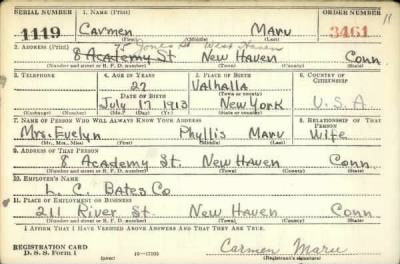 SERIAL NUMBER 1. NAME (Print) ORDER NUMBER
1119 Carmen Maru 3461 11
(First) (Middle) (Last)
2. ADDRESS (Print) 75 Jones St West Haven
8 Academy St New Haven Conn
(Number and street or R. F. D. number) (Town) (County) (State)
3. TELEPHONE 4. AGE IN YEARS 5. PLACE OF BIRTH 6. COUNTRY OF CITIZENSHIP
27 Valhalla
DATE OF BIRTH (Town or county)
July 17 1913 New York U.S.A.
(Exchange) (No.) (Mo.) (Day) (Yr.) (State or country)
7. NAME OF PERSON WHO WILL ALWAYS KNOW YOUR ADDRESS 8. RELATIONSHIP OF THAT PERSON
Mrs. Evelyn Phyllis Maru Wife
(Mr., Mrs., Miss) (First) (Middle) (Last)
9. ADDRESS OF THAT PERSON
8 Academy St. New Haven Conn
(Number and street or R. F. D. number) (Town) (County) (State)
10. EMPLOYER'S NAME
L. C. Bates Co
11. PLACE OF EMPLOYMENT OR BUSINESS
211 River St. New Haven Conn
(Number and street or R. F. D. number) (Town) (County) (State)
I AFFIRM THAT I HAVE VERIFIED ABOVE ANSWERS AND THAT THEY ARE TRUE.
REGISTRATION CARD
D. S. S. Form 1 (over) 16—17105 Carmen Maru
(Registrant's signature)